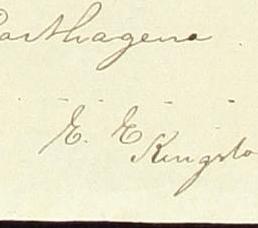 Carthagena
E. E
Kingsto